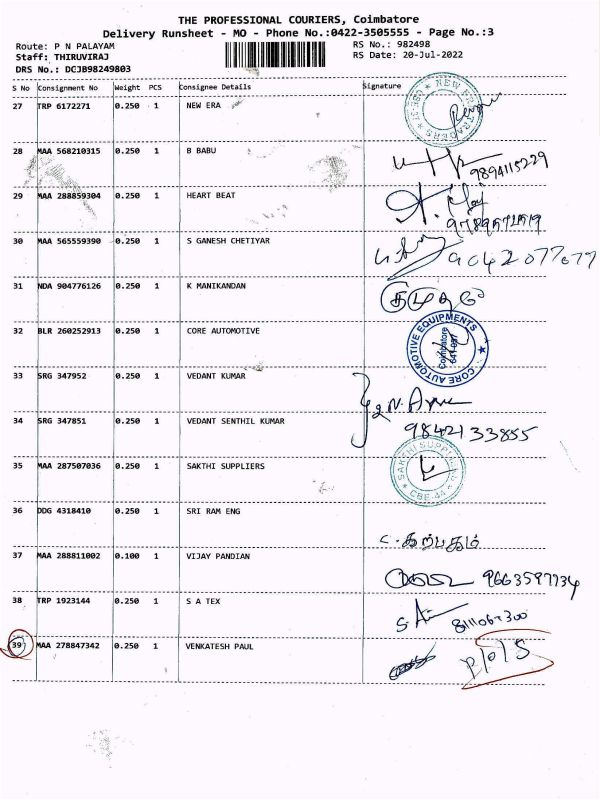 THE PROFESSIONAL COURIERS, Coimbatore
Delivery Runsheet - MO - Phone No.:0422-3505555 - Page No.:3
Route: P N PALAYAM
RS No.: 982498
Staff: THIRUVIRAJ
RS Date: 20-Jul-2022
DRS No.: DCJB98249803
S No Consignment No Weight PCS Consignee Details Signature
27 TRP 6172271 0.250 1 NEW ERA
28 MAA 568210315 0.250 1 B BABU
9894115229
29 MAA 288859304 0.250 1 HEART BEAT
30 MAA 565559390 0.250 1 S GANESH CHETIYAR 9042077077
31 NDA 904776126 0.250 1 K MANIKANDAN
32 BLR 260252913 0.250 1 CORE AUTOMOTIVE
CORE AUTOMOTIVE EQUIPMENTS
Coimbatore
33 SRG 347952 0.250 1 VEDANT KUMAR
34 SRG 347851 0.250 1 VEDANT SENTHIL KUMAR
9842133855
35 MAA 287507036 0.250 1 SAKTHI SUPPLIERS
SAKTHI SUPPLIERS
CBE-44
36 DDG 4318410 0.250 1 SRI RAM ENG
கற்பகம்
37 MAA 288811002 0.100 1 VIJAY PANDIAN
9663597734
38 TRP 1923144 0.250 1 S A TEX
39 MAA 278847342 0.250 1 VENKATESH PAUL